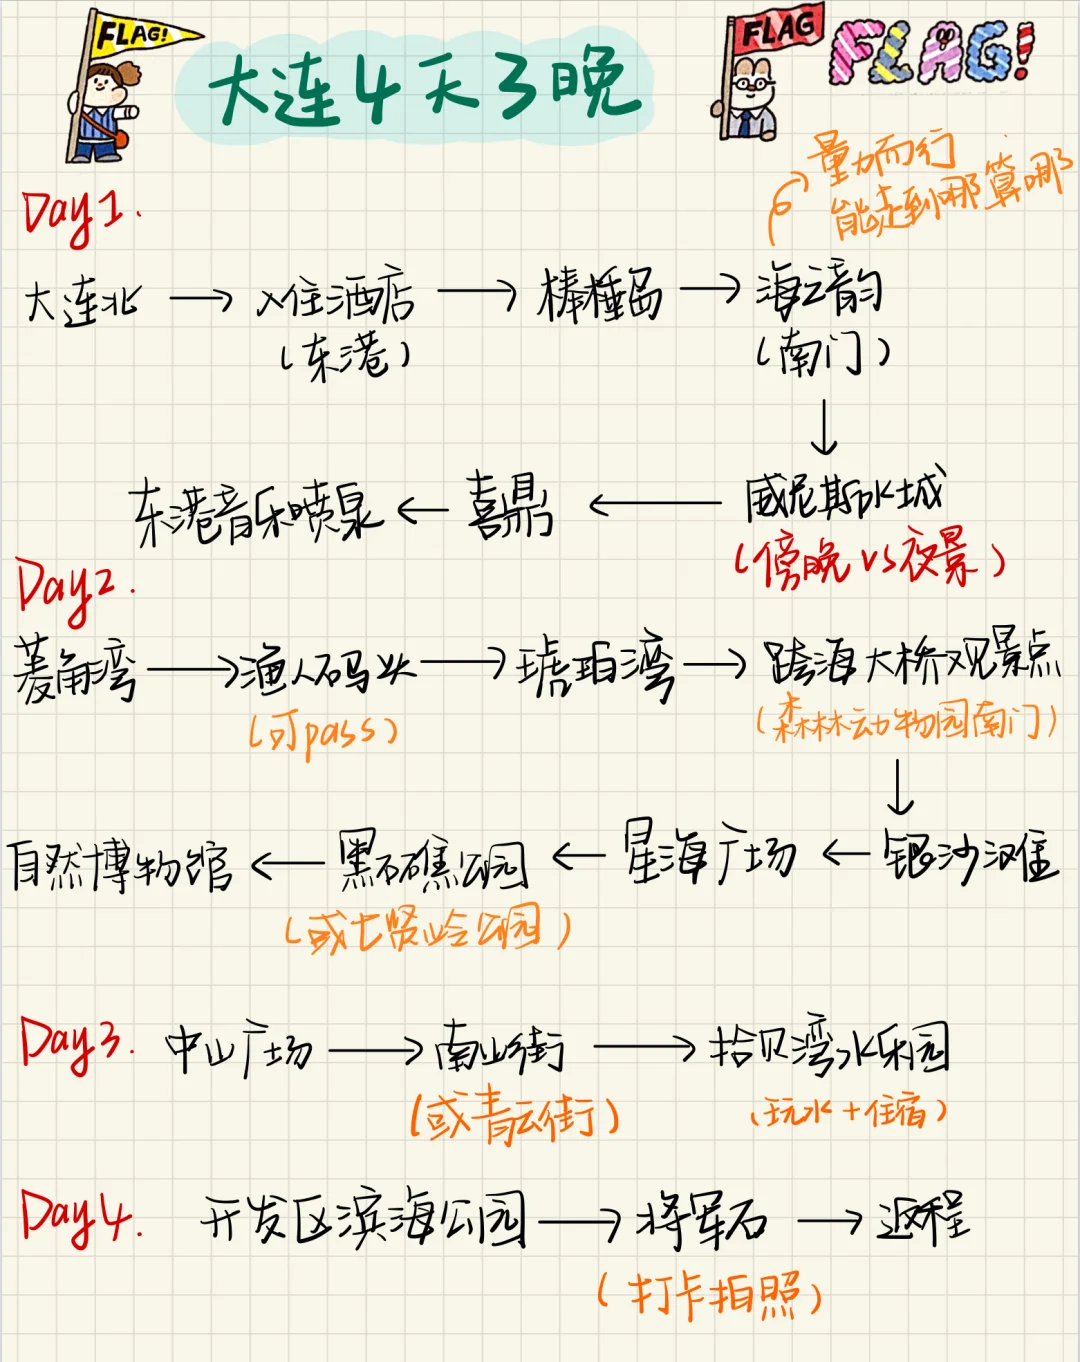 FLAG!
FLAG
FLAG!
大连4天3晚
量力而行
能走到哪算哪
Day1.
大连北 → 入住酒店 → 棒棰岛 → 海之韵
(东港)
(南门)
↓
东港音乐喷泉 ← 喜鼎 ← 威尼斯水城
(傍晚 vs 夜景)
Day2.
菱角湾 → 渔人码头 → 琥珀湾 → 跨海大桥观景点
(可pass)
(森林动物园南门)
↓
自然博物馆 ← 黑石礁公园 ← 星海广场 ← 银沙滩
(或七贤岭公园)
Day3. 中山广场 → 南山街 → 拾贝湾水乐园
(或青云街)
(玩水+住宿)
Day4. 开发区滨海公园 → 将军石 → 返程
(打卡拍照)